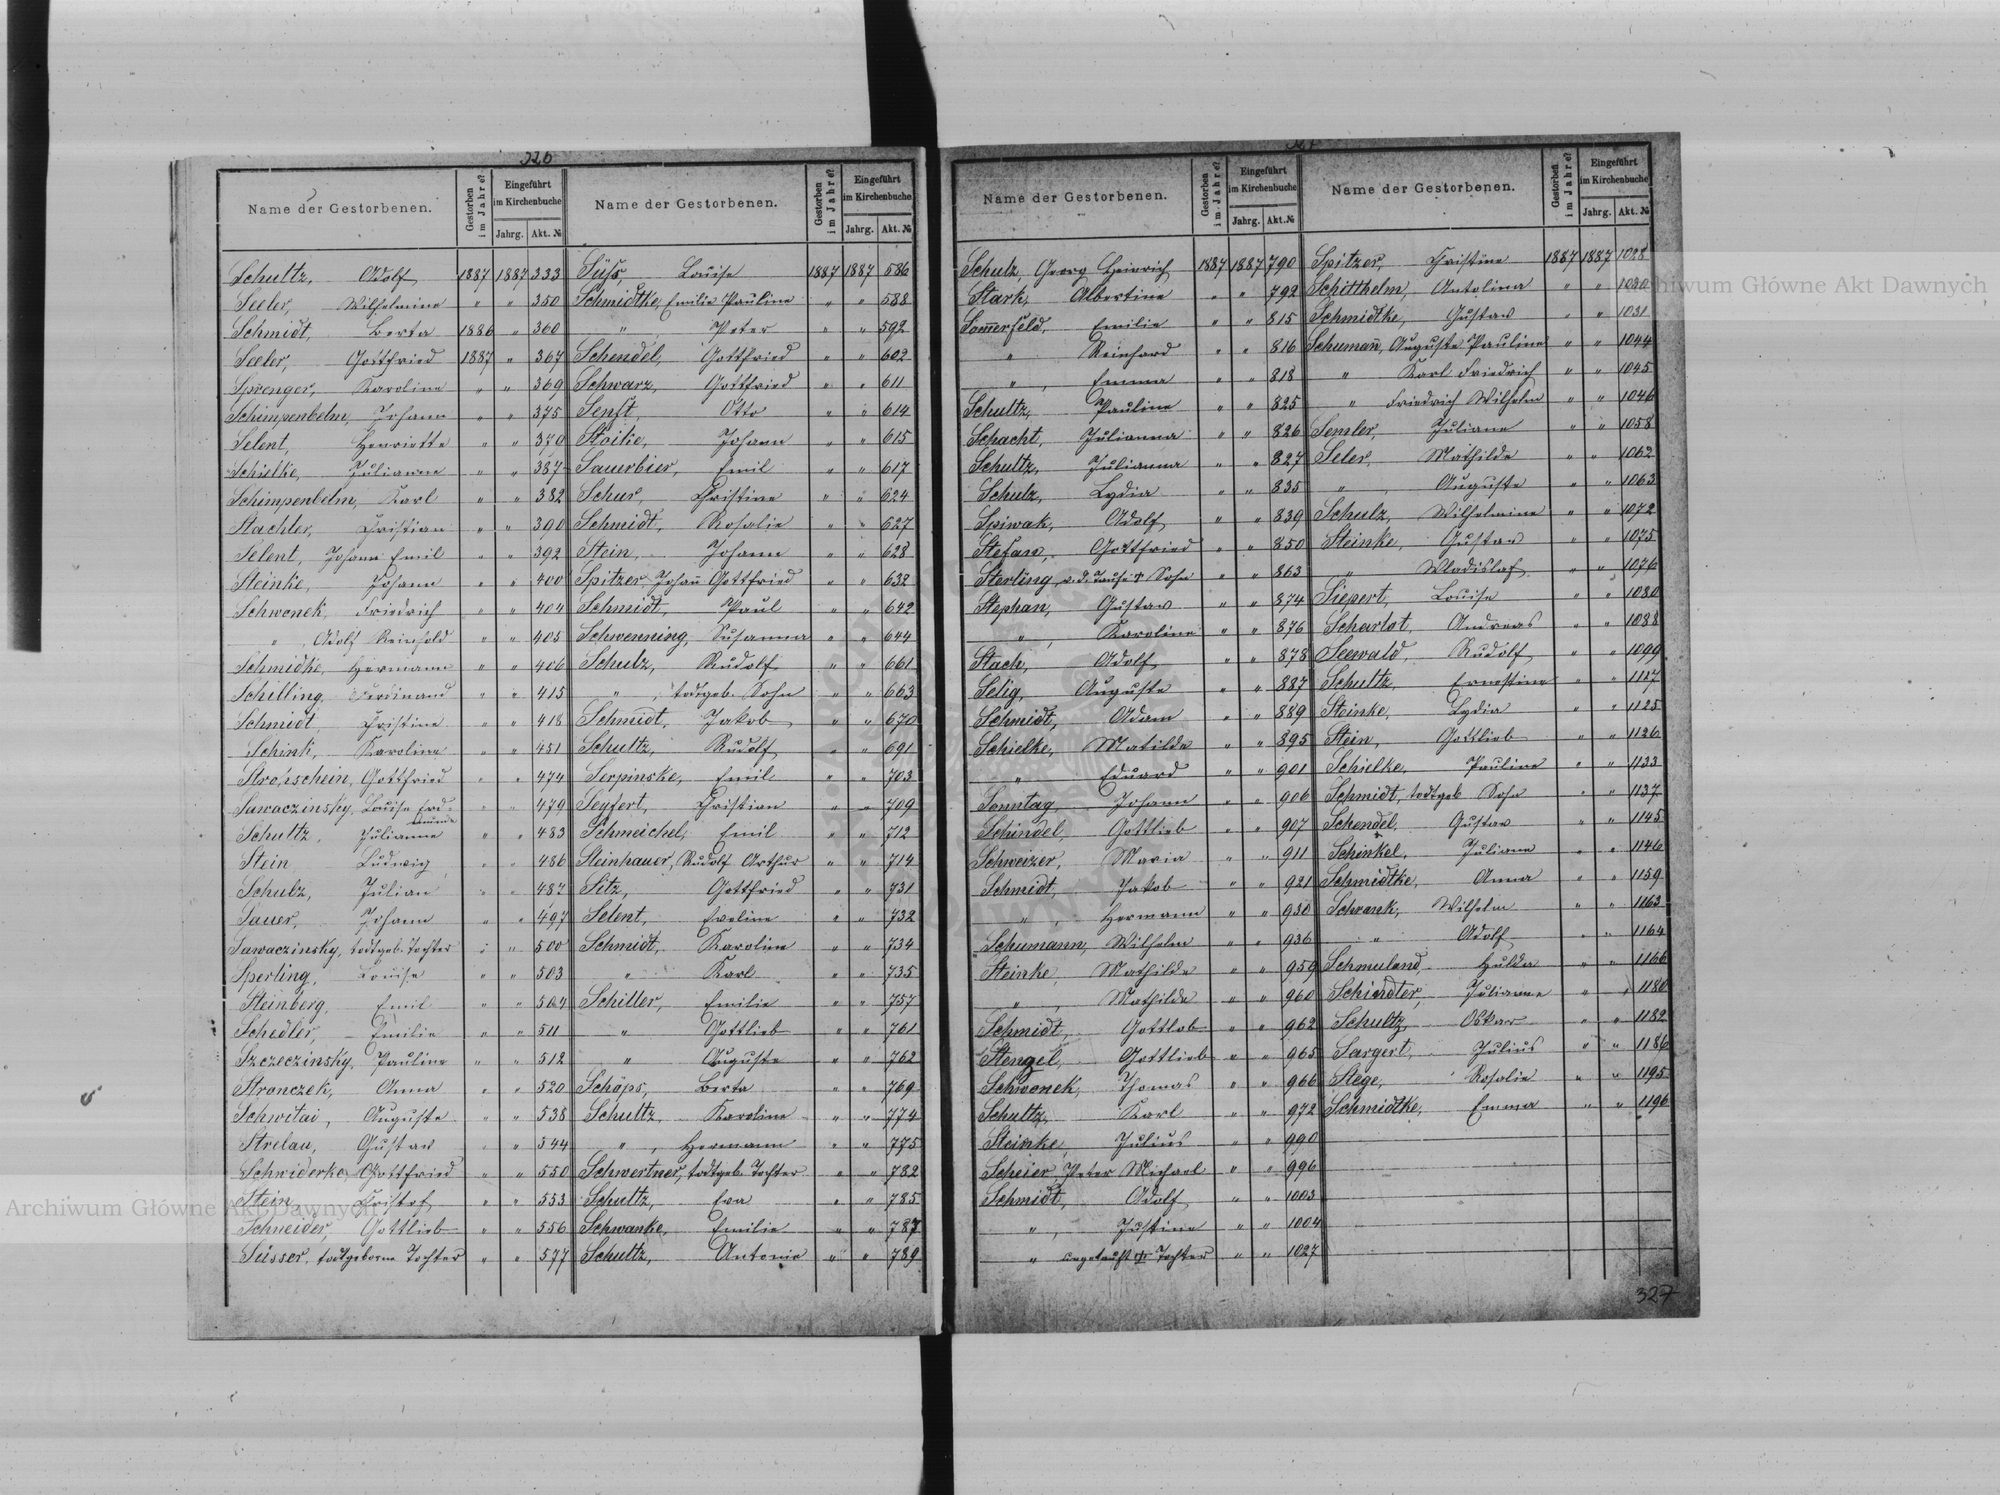 326
Name der Gestorbenen. Gestorben im Jahre? Eingeführt im Kirchenbuche Jahrg. Akt. №
Schultz, Adolf 1887 1887 333
Seeler, Wilhelmine " " 350
Schmidt, Berta 1886 " 360
Seeler, Gottfried 1887 " 367
Sprenger, Karoline " " 369
Schimpenbelm, Johann " " 375
Selent, Henriette " " 379
Schielke, Julianne " " 387
Schimpenbelm, Karl " " 382
Stachler, Christian " " 390
Selent, Johann Emil " " 392
Steinke, Johann " " 400
Schwonek, Friedrich " " 404
" Adolf Reinhold " " 405
Schmidke, Hermann " " 406
Schilling, Ferdinand " " 415
Schmidt, Christine " " 418
Schink, Karoline " " 451
Strohschein, Gottfried " " 474
Sawaczinsky, Louise " " 479
Schultz, Julianne " " 483
Stein Ludwig " " 486
Schulz, Julian " " 487
Sauer, Johann " " 497
Sawaczinsky, todtgeb. Tochter " " 500
Sperling, Louise " " 503
Steinberg, Emil " " 504
Schedler, Emilie " " 511
Szczeczinsky, Pauline " " 512
Stronczek, Anna " " 520
Schwitai, Auguste " " 538
Strelau, Gustav " " 544
Schwiderke, Gottfried " " 550
Stein, Christof " " 553
Schneider, Gottlieb " " 556
Süsser, todtgeborne Tochter " " 577
Name der Gestorbenen. Gestorben im Jahre? Eingeführt im Kirchenbuche Jahrg. Akt. №
Süss Louise 1887 1887 586
Schmidtke, Emilie Pauline " " 588
" Peter " " 592
Schendel, Gottfried " " 602
Schwarz, Gottfried " " 611
Senft, Otto " " 614
Stoike, Johann " " 615
Sauerbier, Emil " " 617
Schur, Christine " " 624
Schmidt, Rosalie " " 627
Stein, Johann " " 628
Spitzer, Johan̄ Gottfried " " 632
Schmidt, Paul " " 642
Schwenning, Susanna " " 644
Schulz, Rudolf " " 661
" todtgeb. Sohn " " 663
Schmidt, Jakob " " 670
Schultz, Rudolf " " 691
Serpinske, Emil " " 703
Seyfert, Christian " " 709
Schmeichel, Emil " " 712
Steinhauer, Rudolf Arthur " " 714
Sitz, Gottfried " " 731
Selent, Eveline " " 732
Schmidt, Karoline " " 734
" Karl " " 735
Schiller, Emilie " " 757
" Gottlieb " " 761
" Auguste " " 762
Schöps, Berta " " 769
Schultz, Karoline " " 774
" , Hermann " " 775
Schwertner, todtgeb. Tochter " " 782
Schultz, Eva " " 785
Schwanke, Emilie " " 787
Schultz, Antonie " " 789
Name der Gestorbenen. Gestorben im Jahre? Eingeführt im Kirchenbuche Jahrg. Akt. №
Schulz, Georg Heinrich 1887 1887 790
Stark, Albertine " " 792
Som̄erfeld, Emilie " " 815
" Reinhard " " 816
" , Emma " " 818
Schultz, Pauline " " 825
Schacht, Julianna " " 826
Schultz, Julianna " " 827
Schulz, Lydia " " 835
Spiwak, Adolf " " 839
Stefan, Gottfried " " 850
Sterling, v. d. Taufe † Sohn " " 863
Stephan, Gustav " " 874
" , Karoline " " 876
Stach, Adolf " " 878
Selig, Auguste " " 887
Schmidt, Adam " " 889
Schielke, Matilde " " 895
" Eduard " " 901
Sonntag, Johann " " 906
Schindel, Gottlieb " " 907
Schweizer, Maria " " 911
Schmidt, Jakob " " 921
" , Hermann " " 930
Schumann, Wilhelm " " 936
Steinke, Mathilde " " 959
" , Mathilde " " 960
Schmidt, Gottlob " " 962
Stengel, Gottlieb " " 965
Schwonek, Thomas " " 966
Schultz, Karl " " 972
Steinke, Julius " " 990
Scheier, Peter Michael " " 996
Schmidt, Adolf " " 1003
" , Justine " " 1004
" ungetauft Tochter " " 1027
Name der Gestorbenen. Gestorben im Jahre? Eingeführt im Kirchenbuche Jahrg. Akt. №
Spitzer, Christine 1887 1887 1028
Schitthelm, Antolina " " 1030
Schmidtke, Gustav " " 1031
Schuman̄, Auguste Pauline " " 1044
" Karl Friedrich " " 1045
" Friedrich Wilhelm " " 1046
Semler, Juliane " " 1058
Seler, Mathilde " " 1062
" , Auguste " " 1063
Schulz, Wilhelmine " " 1072
Steinke, Gustav " " 1075
" Wladislaf " " 1076
Siepert, Louise " " 1080
Scharlot, Andreas " " 1088
Seewald, Rudolf " " 1099
Schultz, Ernestine " " 1117
Steinke, Lydia " " 1125
Stein, Gottlieb " " 1126
Schielke, Pauline " " 1133
Schmidt, todtgeb Sohn " " 1137
Schendel, Gustav " " 1145
Schinkel, Juliane " " 1146
Schmidtke, Anna " " 1159
Schrank, Wilhelm " " 1163
" Adolf " " 1164
Schmuland, Hulda " " 1166
Schindler, Julianne " " 1180
Schultz, Oskar " " 1182
Sargert, Julius " " 1186
Stege, Rosalie " " 1195
Schmidtke, Emma " " 1196
327
Archiwum Główne Akt Dawnych
Archiwum Główne Akt Dawnych